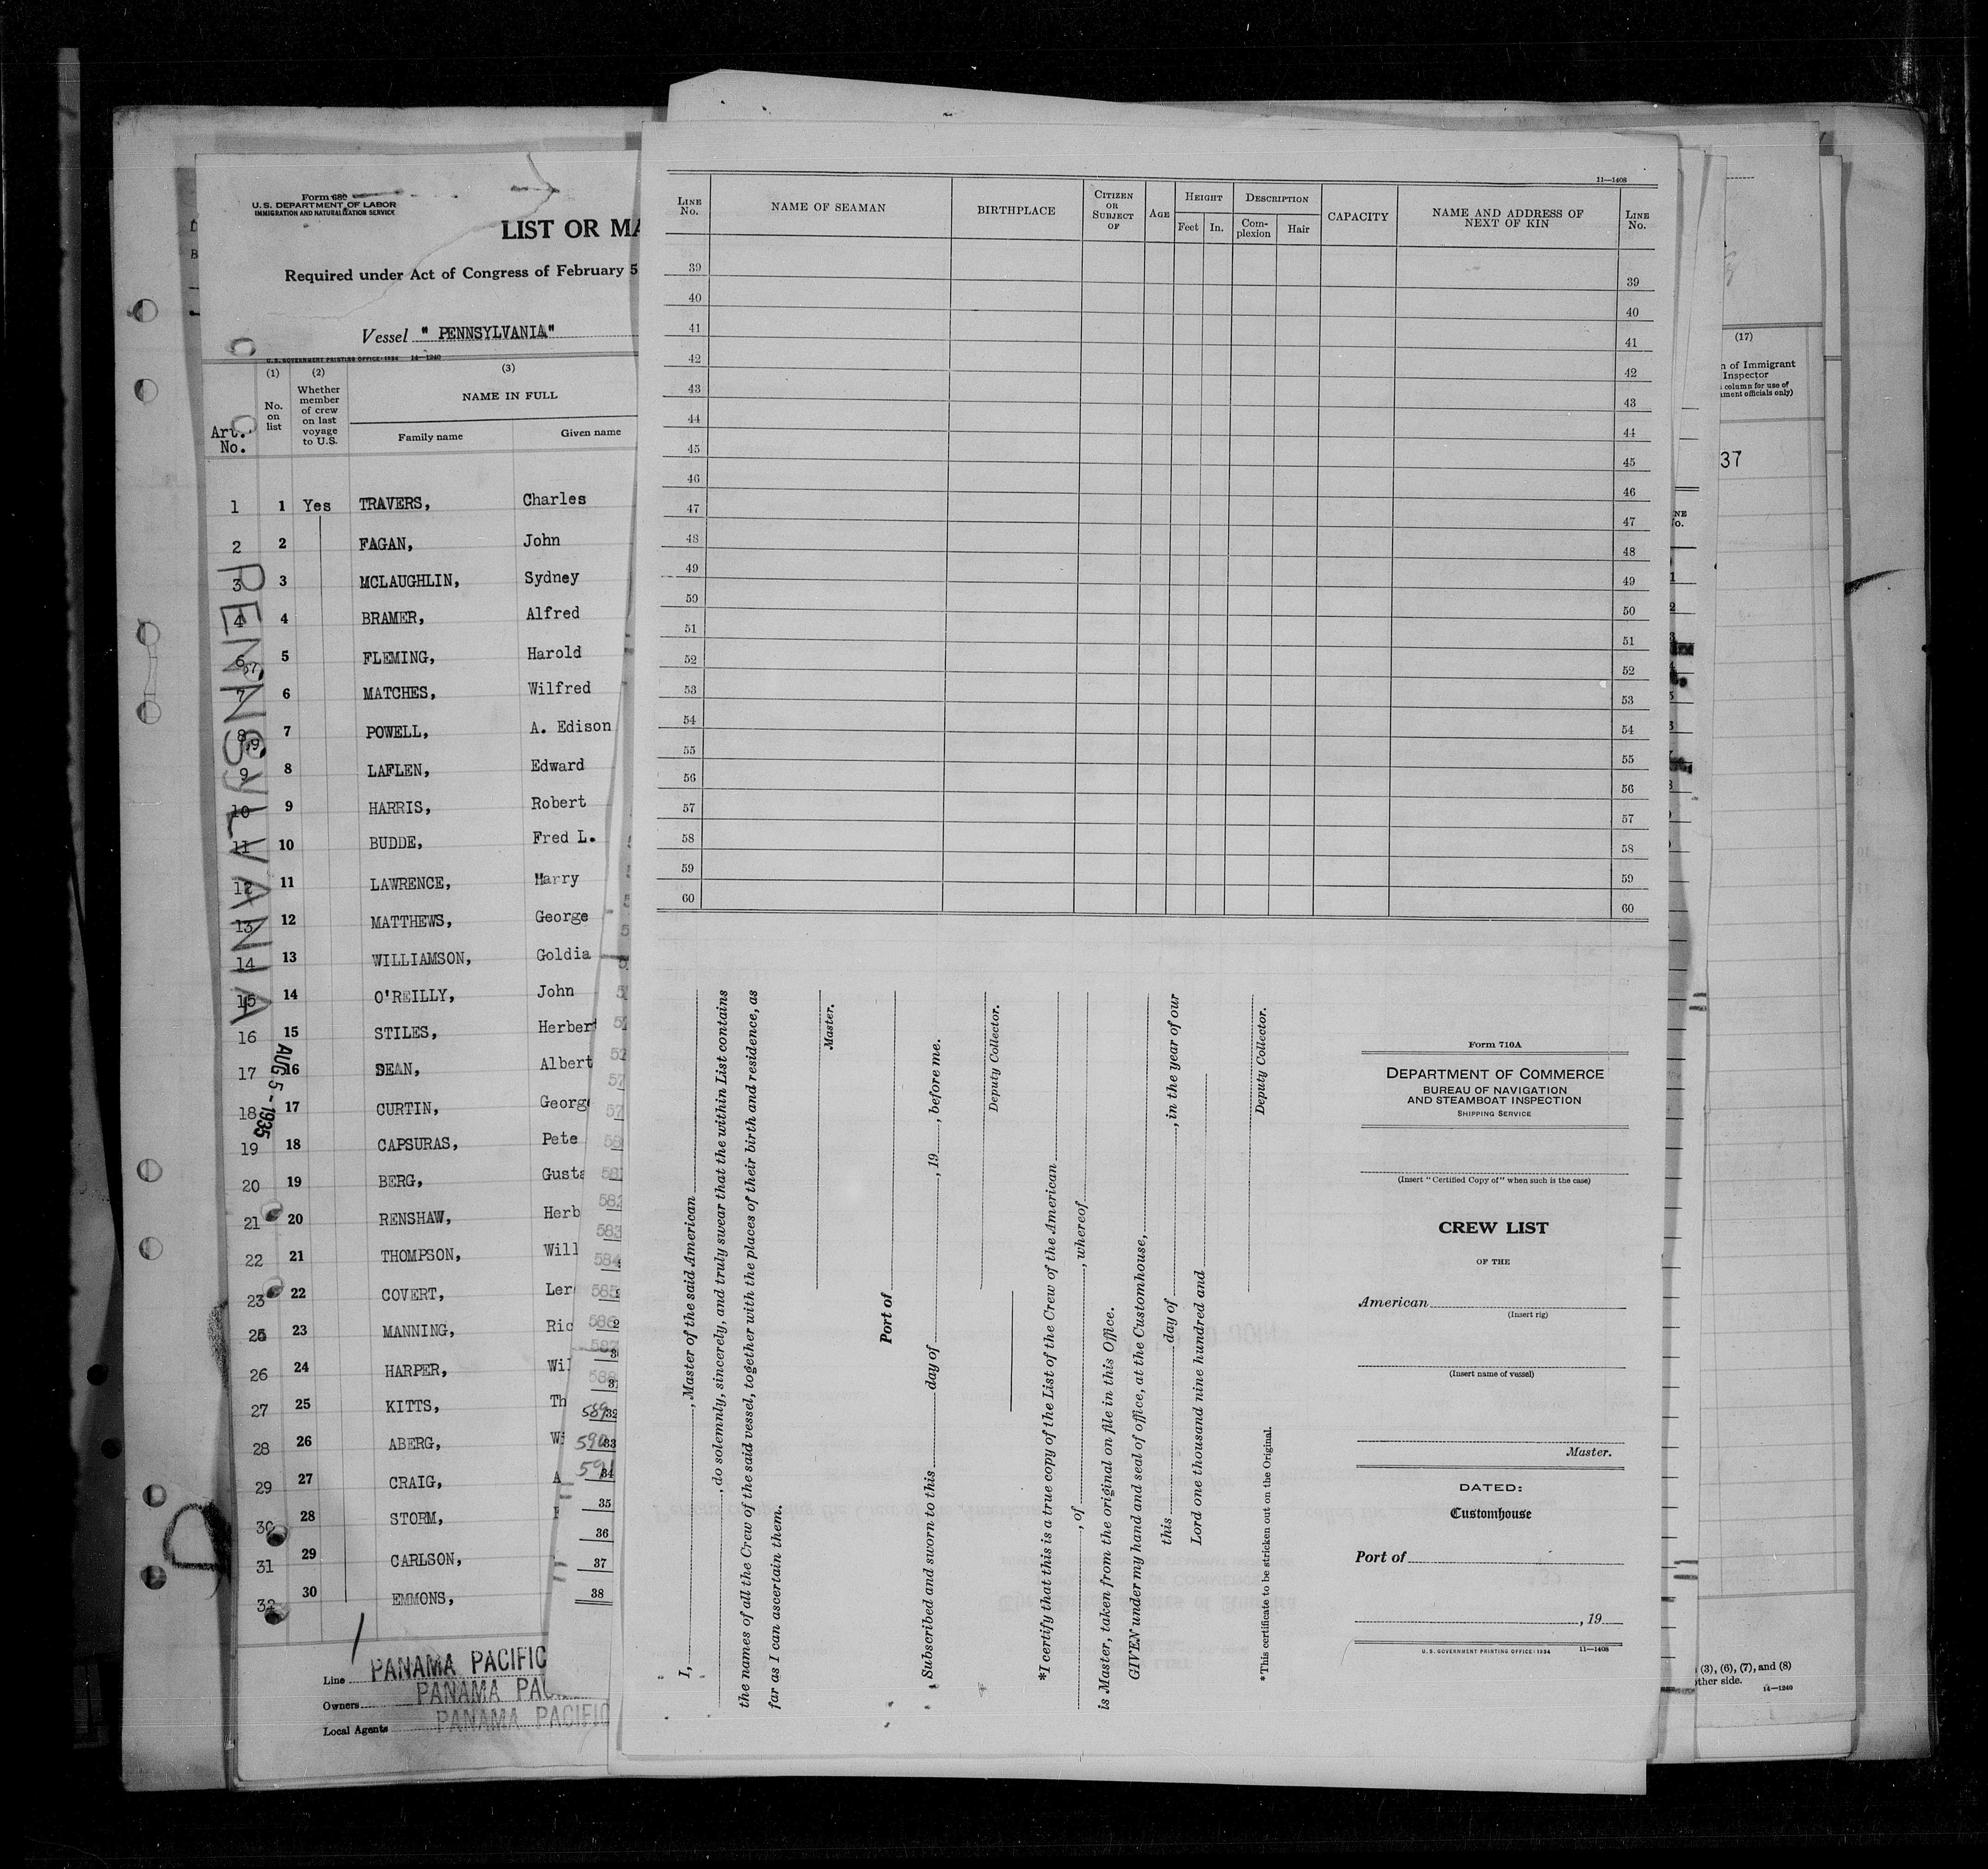 Form 680
U.S. DEPARTMENT OF LABOR
IMMIGRATION AND NATURALIZATION SERVICE
LIST OR MA
Required under Act of Congress of February 5
Vessel " PENNSYLVANIA"
U.S. GOVERNMENT PRINTING OFFICE: 1934 14—1240
(1) (2) (3)
No. on list
Whether member of crew on last voyage to U.S.
NAME IN FULL
Family name Given name
Art. No.
1 1 Yes TRAVERS, Charles
2 2 FAGAN, John
3 3 MCLAUGHLIN, Sydney
4 4 BRAMER, Alfred
6 5 FLEMING, Harold
7 6 MATCHES, Wilfred
8 7 POWELL, A. Edison
9 8 LAFLEN, Edward
10 9 HARRIS, Robert
11 10 BUDDE, Fred L.
12 11 LAWRENCE, Harry
13 12 MATTHEWS, George
14 13 WILLIAMSON, Goldia
15 14 O'REILLY, John
16 15 STILES, Herbert
17 16 DEAN, Albert
18 17 CURTIN, Georg
19 18 CAPSURAS, Pete
20 19 BERG, Gusta
21 20 RENSHAW, Herb
22 21 THOMPSON, Will
23 22 COVERT, Ler
25 23 MANNING, Ric
26 24 HARPER, Wil
27 25 KITTS, Th
28 26 ABERG, Wi
29 27 CRAIG, A
30 28 STORM,
31 29 CARLSON,
32 30 EMMONS,
PENNSYLVANIA
AUG 5 - 1935
Line PANAMA PACIFIC
Owners PANAMA PAC
Local Agents PANAMA PACIFIC
582
583
584
585
586
588
589 32
590 33
591 34
35
36
37
38
11—1408
LINE No. NAME OF SEAMAN BIRTHPLACE CITIZEN OR SUBJECT OF AGE HEIGHT DESCRIPTION CAPACITY NAME AND ADDRESS OF NEXT OF KIN LINE No.
Feet In. Complexion Hair
39 39
40 40
41 41
42 42
43 43
44 44
45 45
46 46
47 47
48 48
49 49
50 50
51 51
52 52
53 53
54 54
55 55
56 56
57 57
58 58
59 59
60 60
I, , Master of the said American
, do solemnly, sincerely, and truly swear that the within List contains
the names of all the Crew of the said vessel, together with the places of their birth and residence, as
far as I can ascertain them.
Master.
Port of
Subscribed and sworn to this day of , 19 , before me.
Deputy Collector.
*I certify that this is a true copy of the List of the Crew of the American
, of , whereof
is Master, taken from the original on file in this Office.
GIVEN under my hand and seal of office, at the Customhouse,
this day of , in the year of our
Lord one thousand nine hundred and
Deputy Collector.
*This certificate to be stricken out on the Original.
Form 710A
DEPARTMENT OF COMMERCE
BUREAU OF NAVIGATION
AND STEAMBOAT INSPECTION
SHIPPING SERVICE
(Insert "Certified Copy of" when such is the case)
CREW LIST
OF THE
American
(Insert rig)
(Insert name of vessel)
Master.
DATED:
Customhouse
Port of
, 19
U.S. GOVERNMENT PRINTING OFFICE: 1934 11—1408
(17)
n of Immigrant
Inspector
column for use of
ment officials only)
37
(3), (6), (7), and (8)
other side.
14—1240